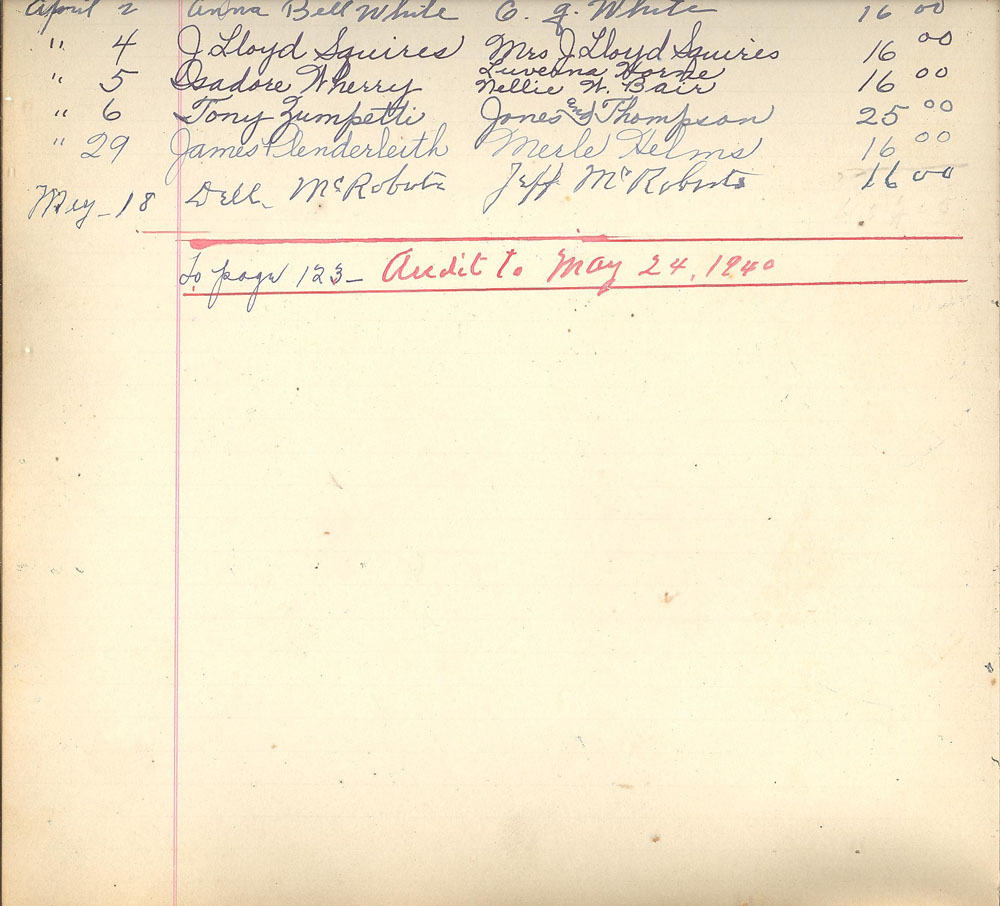 April 2 Anna Bell White C. G. White 16 00
" 4 J Lloyd Squires Mrs J Lloyd Squires 16 00
" 5 Isadore Wherry Luverna Horne Nellie W. Bair 16 00
" 6 Tony Zumpetti Jones and Thompson 25 00
" 29 James Plenderleith Merle Helms 16 00
May - 18 Dell McRoberts Jeff McRoberts 16 00
To page 123 - Audit to May 24, 1940